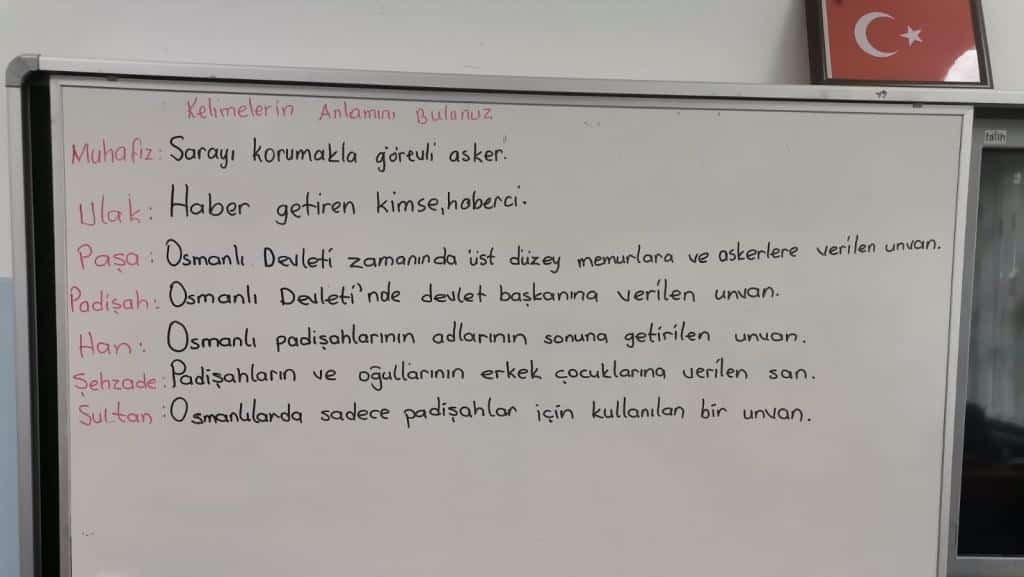 Kelimelerin Anlamını Bulunuz
Muhafız: Sarayı korumakla görevli asker.
Ulak: Haber getiren kimse, haberci.
Paşa: Osmanlı Devleti zamanında üst düzey memurlara ve askerlere verilen unvan.
Padişah: Osmanlı Devleti'nde devlet başkanına verilen unvan.
Han: Osmanlı padişahlarının adlarının sonuna getirilen unvan.
Şehzade: Padişahların ve oğullarının erkek çocuklarına verilen san.
Sultan: Osmanlılarda sadece padişahlar için kullanılan bir unvan.